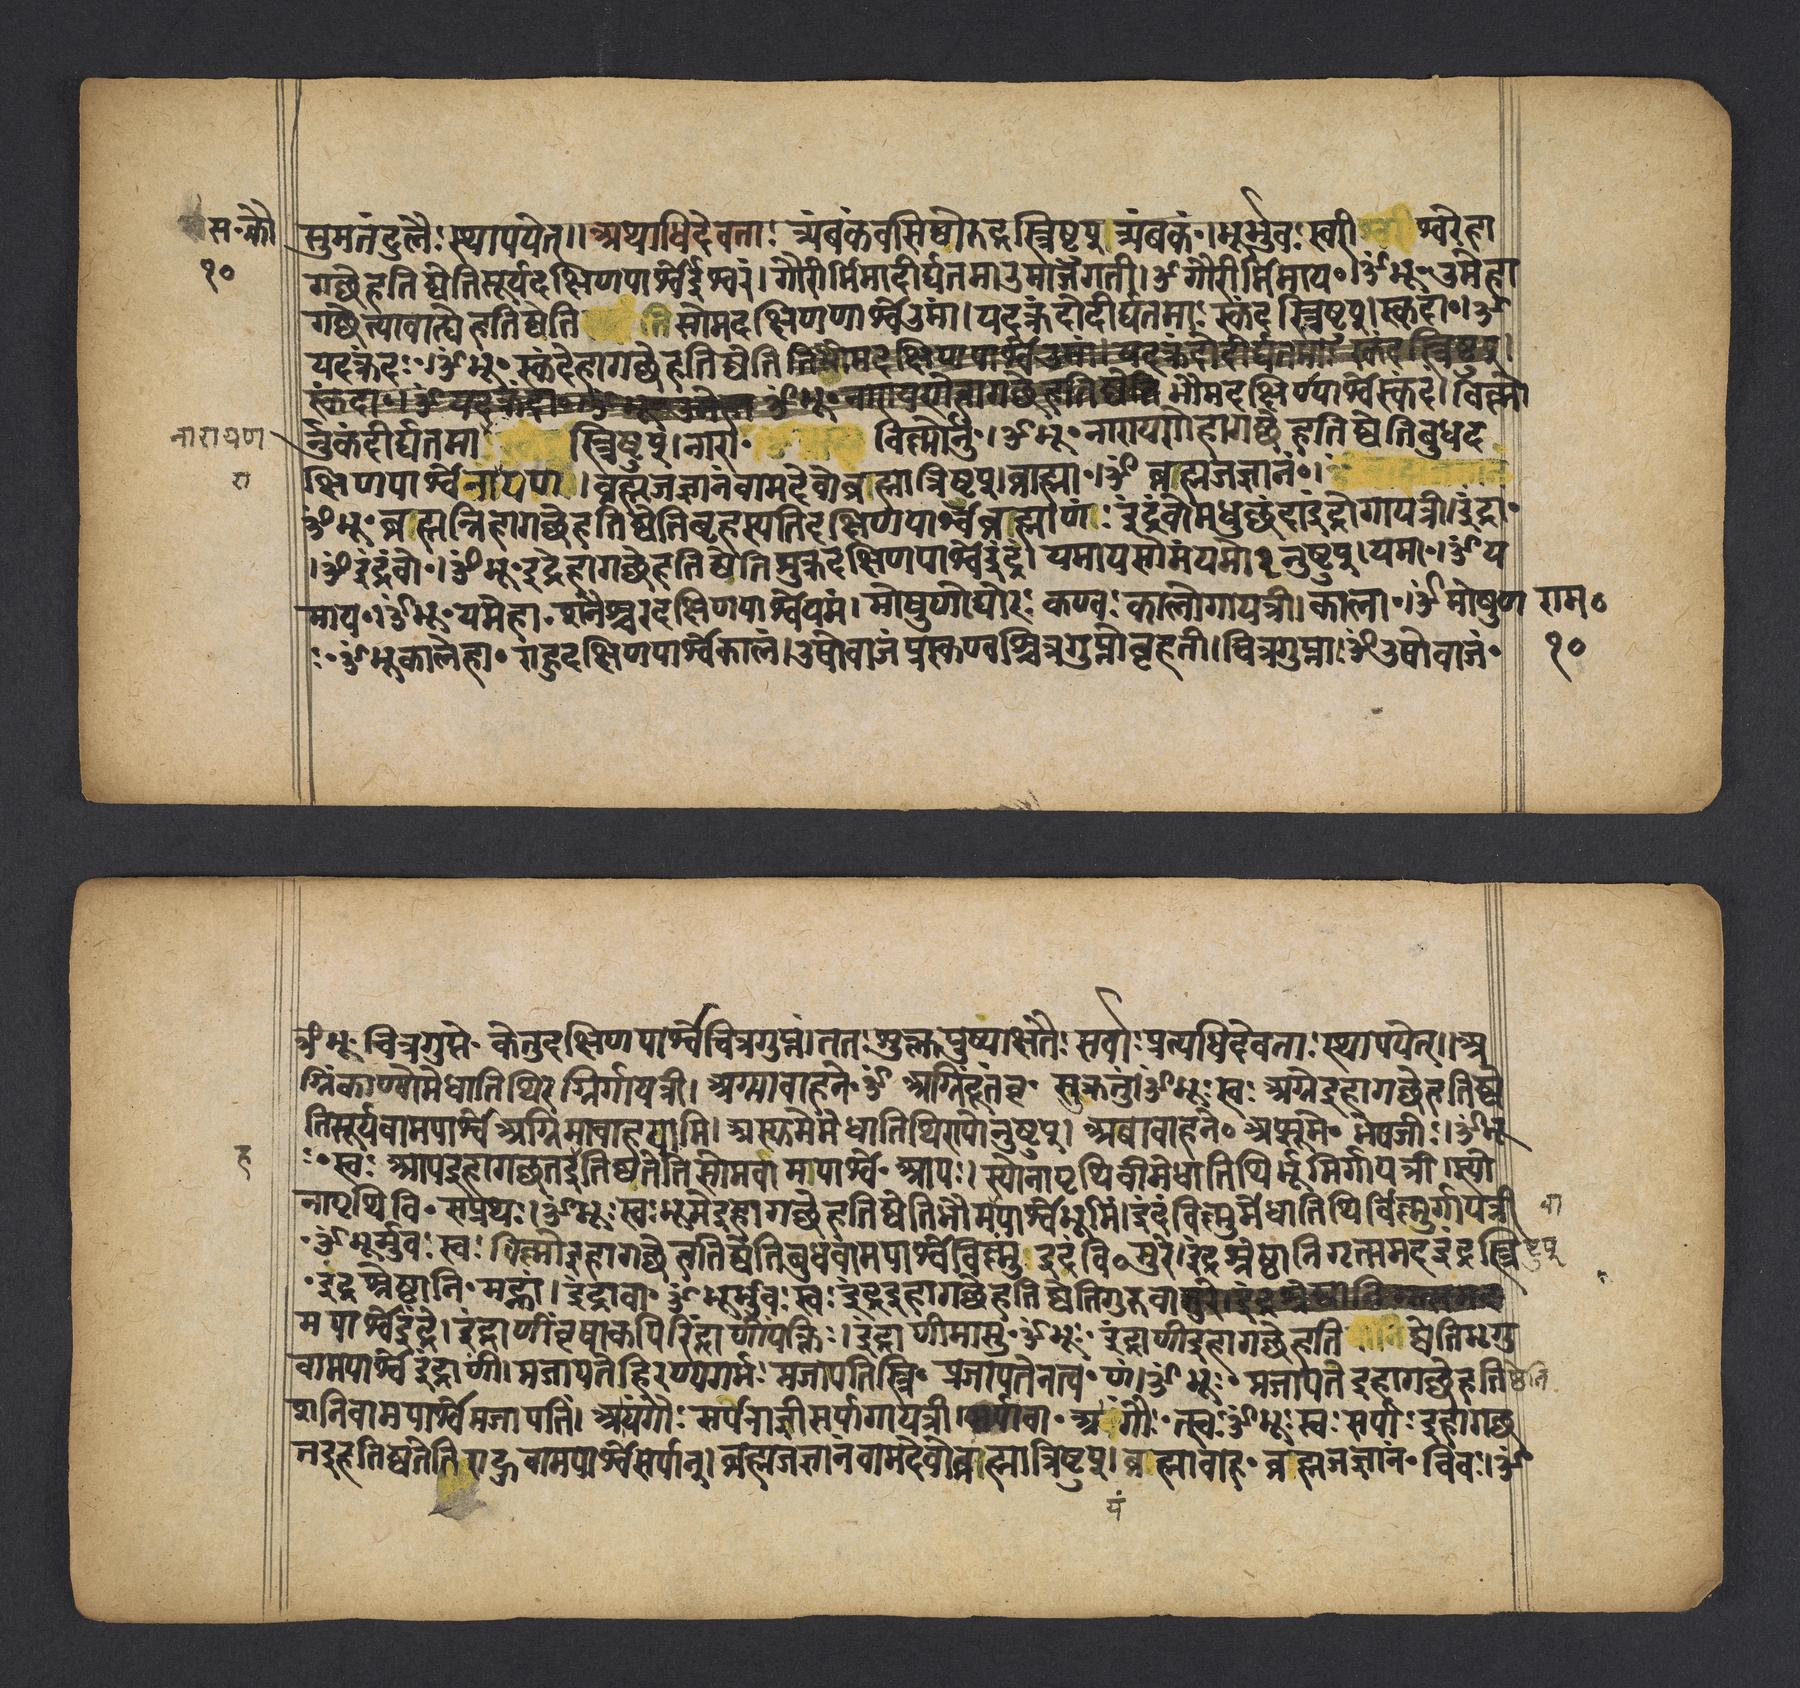 स॰कौ
१०
सुमतंदुलैः स्थापयेत्।।अथाधिदेवताः त्र्यंबकंवसिष्ठोरुद्रस्त्रिष्टुप् त्र्यंबकं॰।भूर्भुवः स्वरी श्वरेहा
गछेहतिष्ठेतिसूर्यदक्षिणपार्श्वेईश्वरं। गौरीर्मिमादीर्घतमाउमाजगती।ॐ गौरीर्मिमाय॰।ॐभू॰उमेहा
गछे त्यावाह्ये हतिष्ठेति सोमदक्षिणपार्श्वेउमा। यदक्रंदोदीर्घतमाः स्कंद स्त्रिष्टुप्।स्कंदा॰।ॐ
यदक्रंदः॰।ॐभू॰ स्कंदेहागछेहतिष्ठेति
भौमदक्षिणपार्श्वेस्कंद। विष्णो
र्नुकंदीर्घतमा स्त्रिष्टुप्।नारा॰ विष्णोर्नु॰।ॐभू॰ नारायणेहागछे हतिष्ठेतिबुधद
नारायण
क्षिणपार्श्वेनारायणं।ब्रह्मजज्ञानंवामदेवोब्रह्मात्रिष्टुप्।ब्राह्मा॰।ॐ ब्रह्मजज्ञानं॰।
ॐभू॰ ब्रह्मन्निहागछेहतिष्ठेतिबृहस्पतिदक्षिणपार्श्वेब्राह्माणं इंद्रंवोमधुछंदाइंद्रोगायत्री।इंद्रा॰
।ॐइंद्रंवो॰।ॐभू॰इंद्रेहागछेहतिष्ठेतिसुक्रदक्षिणपार्श्वेइंद्रं। यमायसोमंयमोनुष्टुप्।यमा॰।ॐय
माय॰।ॐभू॰यमेहा॰शनैश्चरदक्षिणपार्श्वेयमं। मोषुणोघोरः कण्वः कालोगायत्री।काला॰।ॐमोषुण
राम॰
१०
:॰ॐभूकालेहा॰ राहुदक्षिणपार्श्वेकालं।उषोवाजंप्रस्कण्वश्चित्रगुप्तोबृहती।चित्रगुप्ता।ॐउषोवाजं॰
ॐभू॰ चित्रगुप्ते॰ केतुदक्षिणपार्श्वेचित्रगुप्तं।ततःशुक्लपुष्पाक्षतैः सर्वाः प्रत्यधिदेवताः स्थापयेत्।।अ
ग्निंकाण्वोमेधातिथिरग्निर्गायत्री। अग्न्यावाहने॰ॐ अग्निंदूतंवृ॰ सुक्रतुं।ॐभूः स्वः अग्नेइहागछेहतिष्ठे
तिसूर्यवामपार्श्वे अग्निमावाहयामि। अप्सुमेमेधातिथिरापोनुष्टुप्। अबावाहने॰ अप्सुमे॰ भेषजीः।ॐभू
ः॰स्वः आपइहागछतइहतिष्ठतेतिसोमवामपार्श्वे॰ आपः। स्योनापृथिवीमेधातिथिर्भूमिर्गायत्री।स्यो
नापृथिवि॰ सप्रथः।ॐभूः स्वःभूमेइहागछेहतिष्ठेतिभौमपार्श्वेभूमिं।इदंविष्णुर्मेधातिथिर्विष्णुर्गायत्री
वा
॰ॐभूर्भुवः स्वः विष्णोइहागछेहतिष्ठेतिबुधवामपार्श्वेविष्णुं इदंवि॰सुरे।इंद्रश्रेष्ठानिगृत्समदइंद्रस्त्रि
ष्टुप्
॰इंद्र श्रेष्ठानि॰ मह्ना। इंद्रावा॰ॐभूर्भुवः स्वः इंद्रइहागछेहतिष्ठेतिगुरुवा
मपार्श्वेइंद्रं। इंद्राणींवृषाकपिरिंद्राणीपंक्तिः। इंद्राणीमासु॰ॐभूः॰ इंद्राणीइहागछेहति ष्ठेतिभृगु
वामपार्श्वेइंद्राणी। प्रजापतेहिरण्यगर्भः प्रजापतिस्त्रि॰ प्रजापतेनत्व॰ णं।ॐभूः॰ प्रजापते इहागछेहति
ष्ठेति
शनिवामपार्श्वेप्रजापतिं। अयंगौः सर्पराज्ञीसर्पागायत्री।सर्पावा॰ अयंगौः॰ त्स्वः।ॐभूः स्वः सर्पाः इहागछ
तइहतिष्ठतेति राहुवामपार्श्वेसर्पान्। ब्रह्मजज्ञानंवामदेवोब्राह्मात्रिष्टुप्। ब्राह्मावाह॰ ब्रह्मजज्ञानं॰ विवः।ॐ
यं